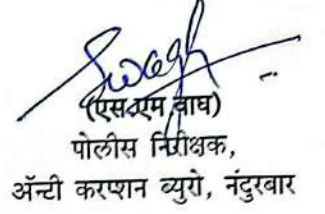 (एस.एम वाघ)
पोलीस निरीक्षक,
ॲन्टी करप्शन ब्युरो, नंदुरबार